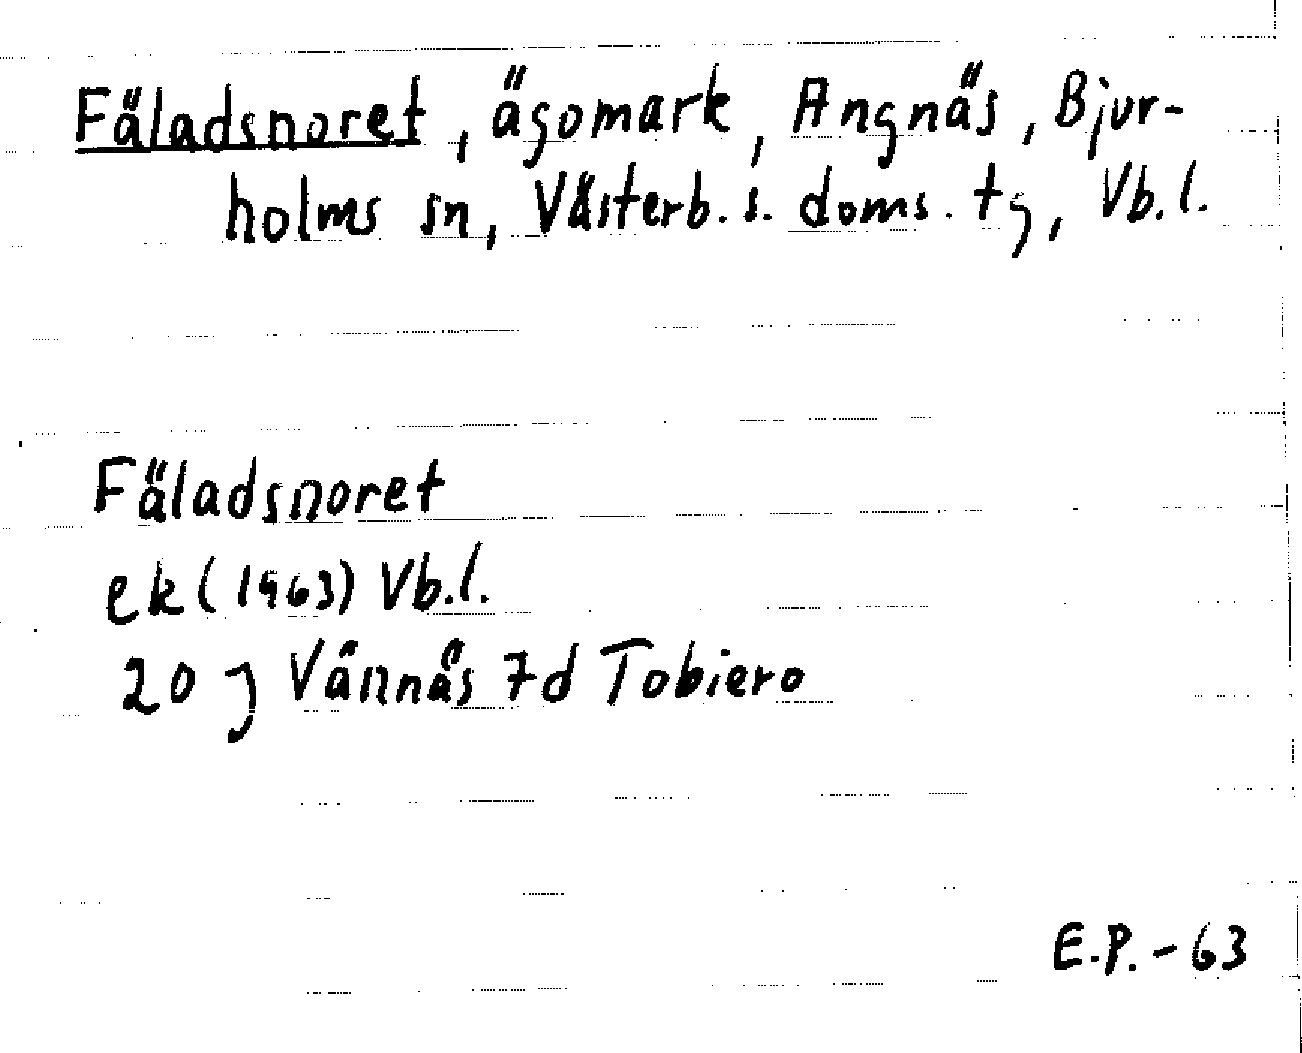 Fäladsnoret, ägomark, Angnäs, Bjur-
holms sn, Västerb. s. doms. tg, Vb.l.
Fäladsnoret
ek (1963) Vb.l.
20 J Vännäs 7d Tobiero
E.P. - 63